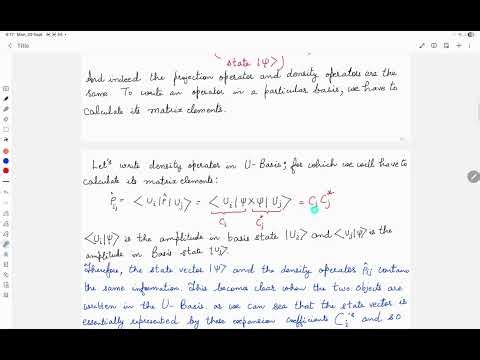 Title
state |ψ⟩)
And indeed the projection operator and density operators are the
same. To write an operator in a particular basis, we have to
calculate its matrix elements.
Let's write density operator in U-Basis; for which we will have to
calculate its matrix elements:
ρ̂ij = ⟨Ui|ρ̂|Uj⟩ = ⟨Ui|ψ⟩⟨ψ|Uj⟩ = Ci Cj*
Ci Cj*
⟨Ui|ψ⟩ is the amplitude in basis state |Ui⟩ and ⟨Uj|ψ⟩ is the
amplitude in Basis state |Uj⟩.
Therefore, the state vector |ψ⟩ and the density operator ρ̂ij contains
the same information. This become clear when the two objects are
written in the U-Basis as we can see that the state vector is
essentially represented by these expansion coefficients Ci's and so